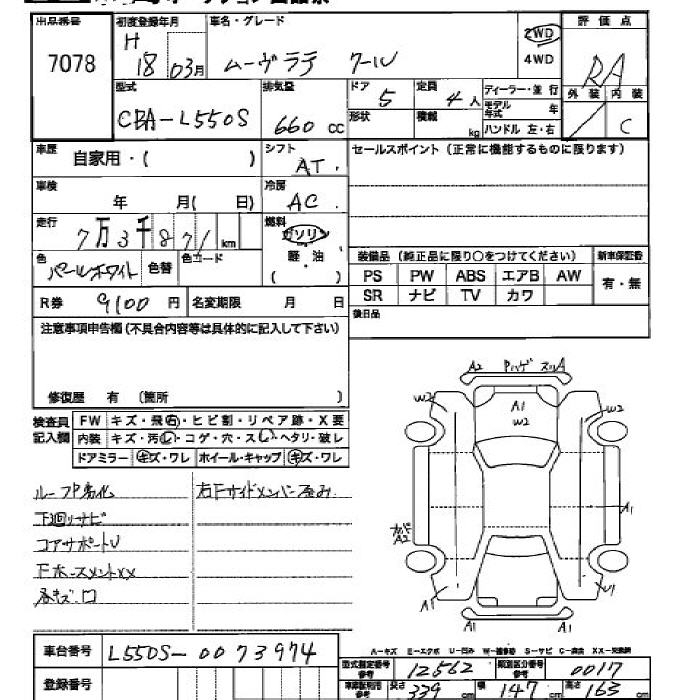 出品番号 初度登録年月 車名・グレード 評価点
7078 H 18 03月 ムーヴラテ クール 2WD 4WD RA
型式 排気量 ドア 5 定員 4人 ディーラー・並行 外装 内装
CBA-L550S 660cc 形状 積載 kg モデル年式 年 ハンドル 左・右 C
車歴 自家用・( ) シフト AT. セールスポイント(正常に機能するものに限ります)
車検 年 月( 日) 冷房 AC.
走行 7万3千871km 燃料 ガソリン 軽・油 ( )
色 パールホワイト 色替 色コード 装備品(純正品に限り○をつけてください) 新車保証書
PS PW ABS エアB AW 有・無
R券 9100円 名変期限 月 日 SR ナビ TV カワ
注意事項申告欄(不具合内容等は具体的に記入して下さい) 後日品
修復歴 有 (箇所 )
検査員記入欄 FW キズ・飛石・ヒビ割・リペア跡・X要
内装 キズ・汚レ・コゲ・穴・スレ・ヘタリ・破レ
ドアミラー キズ・ワレ ホイール・キャップ キズ・ワレ
A2 Pハゲ スリA
W2 A1 W2 W2
A1
A2
A1 U1
A1 A1
ルーフP劣化 右Fサイドメンバー歪み
下廻りサビ
コアサポートU
Fホースメントxx
各キズ・凹
A-キズ E-エクボ U-凹み W-補修跡 S-サビ C-腐食 XX-交換済
車台番号 L550S-0073974 型式指定番号 参考 12562 類別区分番号 参考 0017
登録番号 長さ 339 cm 幅 147 cm 高さ 163 cm